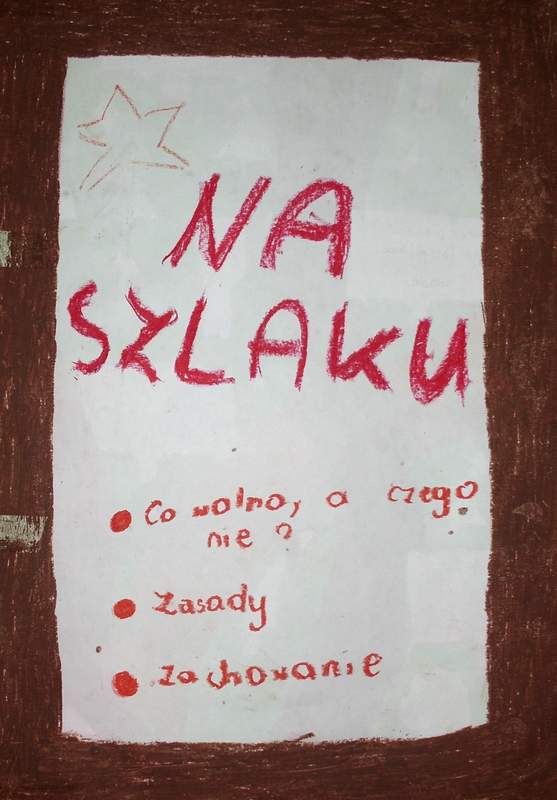 NA
SZLAKU
• Co wolno, a czego
nie?
• Zasady
• Zachowanie